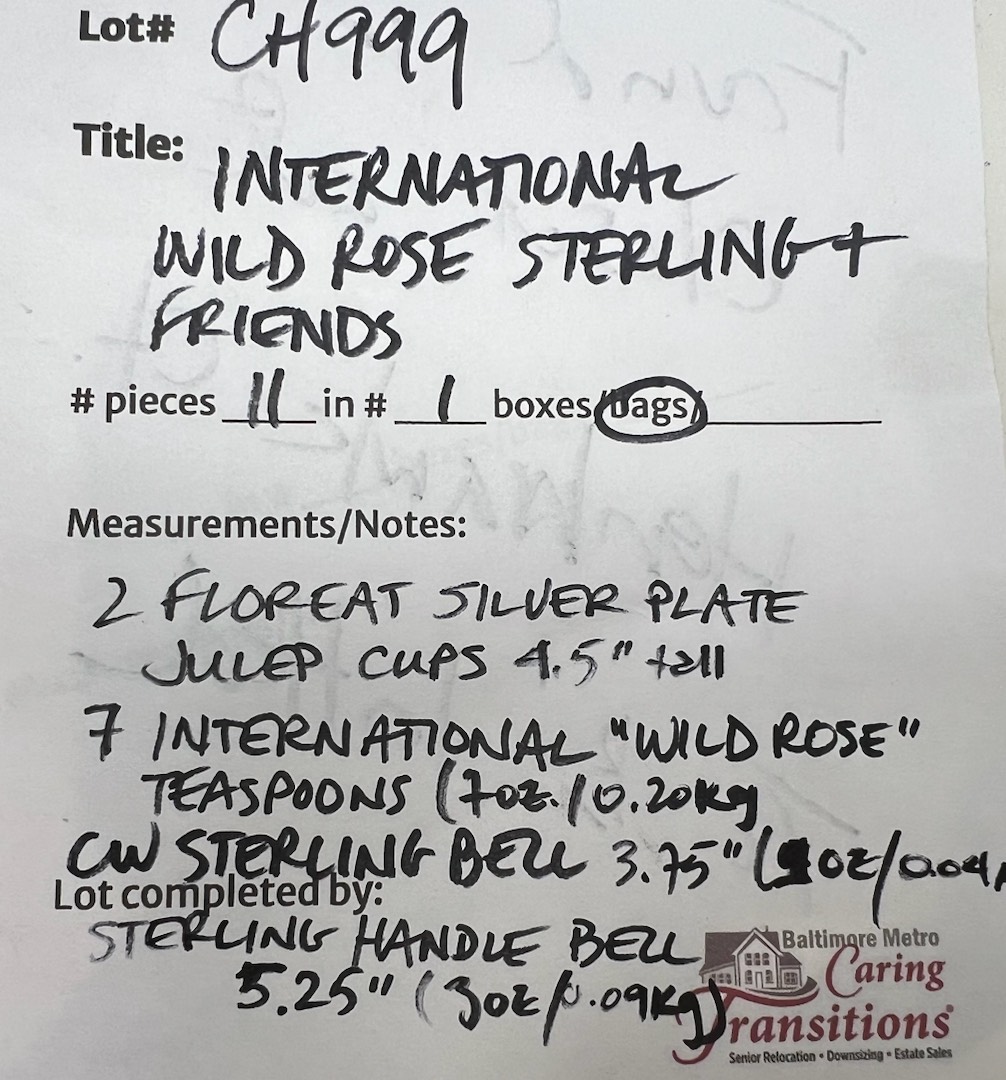 Lot# CH999
Title: INTERNATIONAL
WILD ROSE STERLING +
FRIENDS
# pieces 11 in # 1 boxes/bags/
Measurements/Notes:
2 FLOREAT SILVER PLATE
JULEP CUPS 4.5" tall
7 INTERNATIONAL "WILD ROSE"
TEASPOONS (7oz./0.20kg
CW STERLING BELL 3.75" (1oz/0.04
Lot completed by:
STERLING HANDLE BELL
5.25" (3oz/0.09kg)
Baltimore Metro
Caring
Transitions
Senior Relocation • Downsizing • Estate Sales